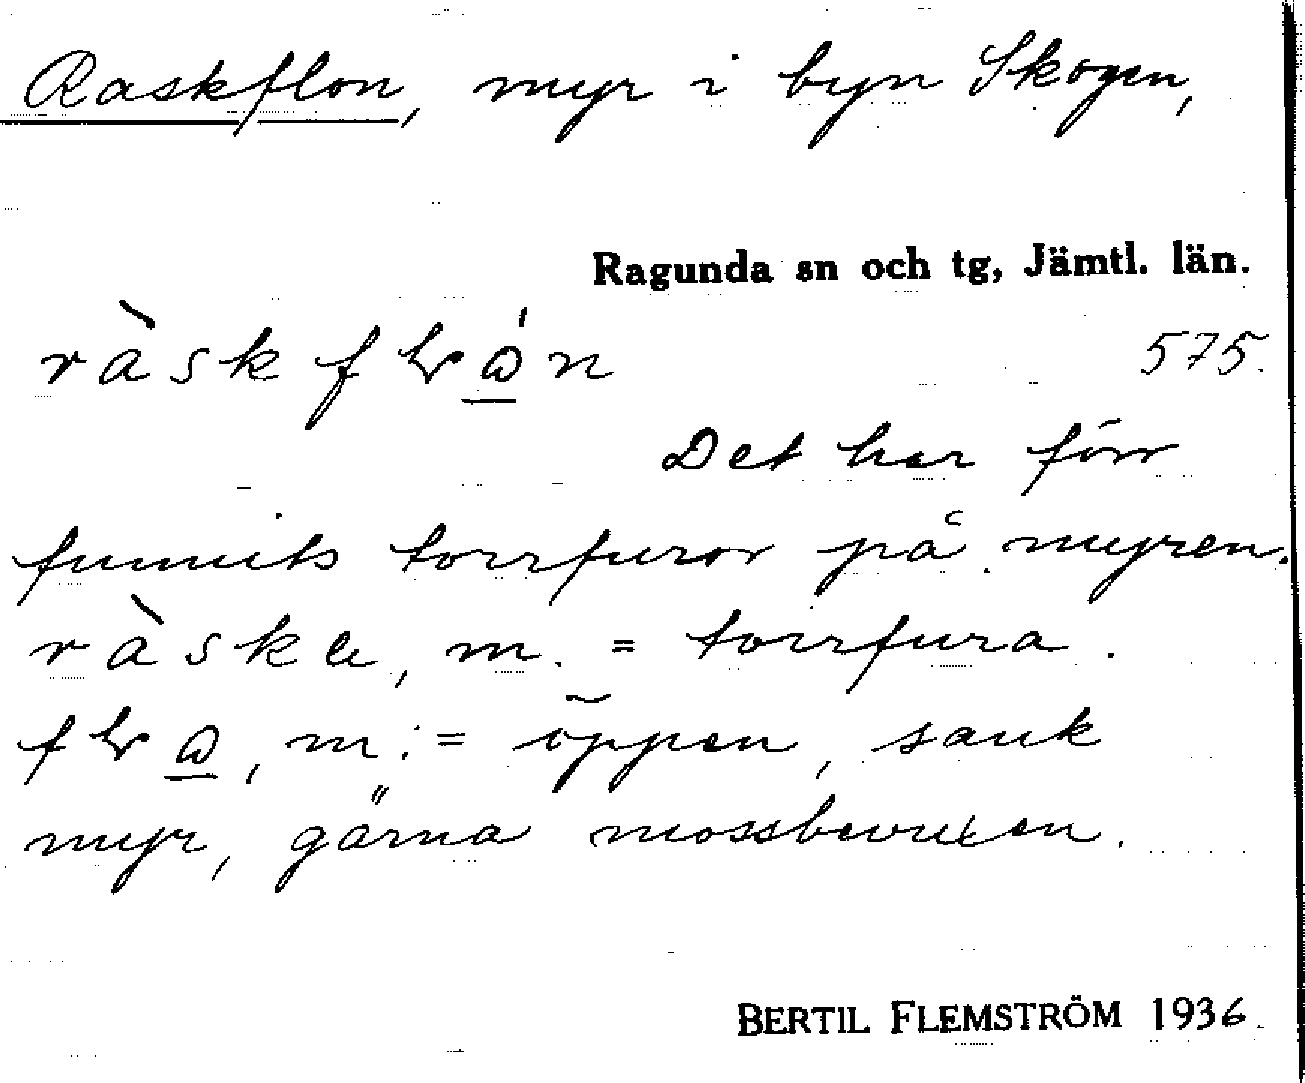 Raskflon, myr i byn Skogen,
Ragunda sn och tg, Jämtl. län.
575.
Det har förr
funnits torrfuror på myren.
m. = torrfura.
m. = öppen, sank
myr, gärna mossbevuxen.
BERTIL FLEMSTRÖM 1936.